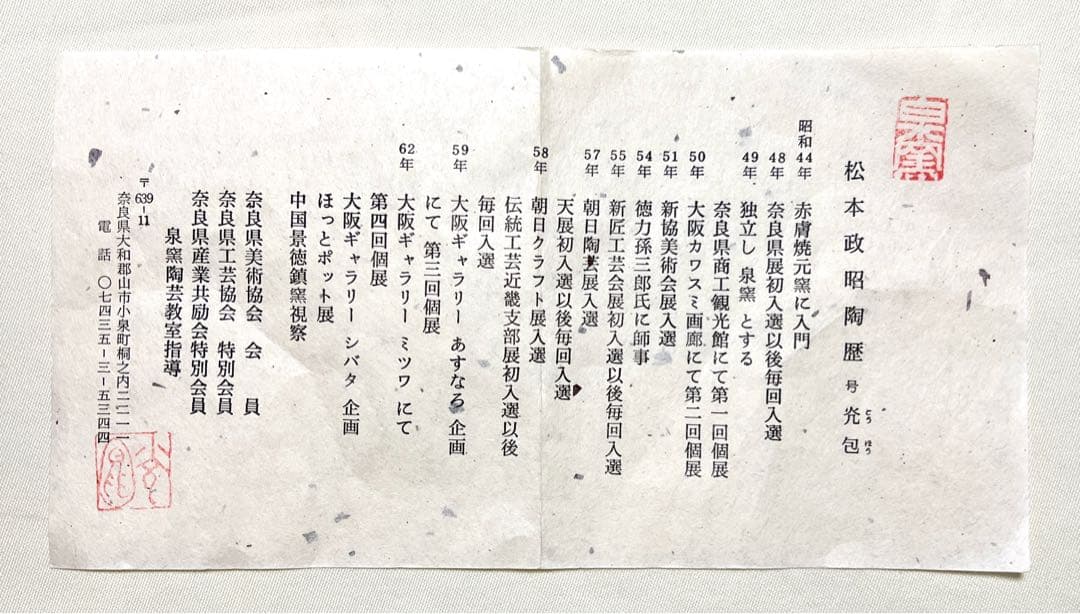 泉窯
松本政昭陶歴 号 兊包
とう ほう
昭和44年 赤膚焼元窯に入門
48年 奈良県展初入選以後毎回入選
49年 独立し 泉窯 とする
奈良県商工観光館にて第一回個展
50年 大阪カワスミ画廊にて第二回個展
51年 新協美術会展入選
54年 徳力孫三郎氏に師事
55年 新匠工芸会展初入選以後毎回入選
57年 朝日陶芸展入選
天展初入選以後毎回入選
58年 朝日クラフト展入選
伝統工芸近畿支部展初入選以後
毎回入選
59年 大阪ギャラリー あすなろ 企画
にて 第三回個展
62年 大阪ギャラリー ミツワ にて
第四回個展
大阪ギャラリー シバタ 企画
ほっとポット展
中国景徳鎮窯視察
奈良県美術協会 会員
奈良県工芸協会 特別会員
奈良県産業共励会特別会員
泉窯陶芸教室指導
〒639-11
奈良県大和郡山市小泉町桐之内二二一一
電話 〇七四三五-三-五三四四